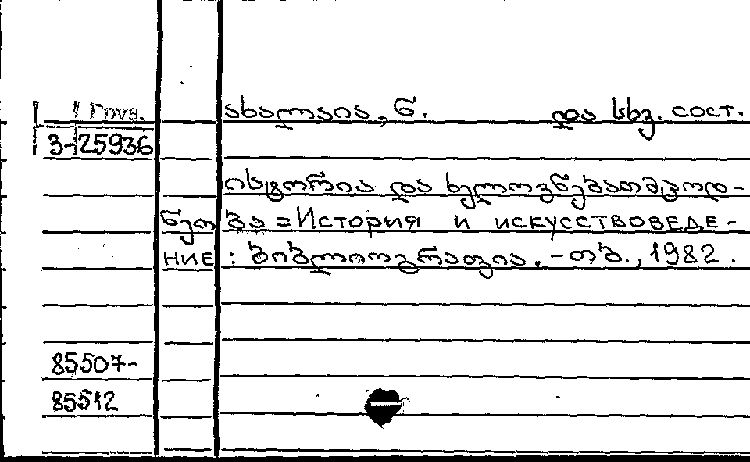 Груз.
ახალაია, ნ. და სხვ. сост.
3-25936
ისტორია და ხელოვნებათმცოდ-
ნეობა = История и искусствоведе-
ние : ბიბლიოგრაფია. - თბ., 1982.
85507-
85512